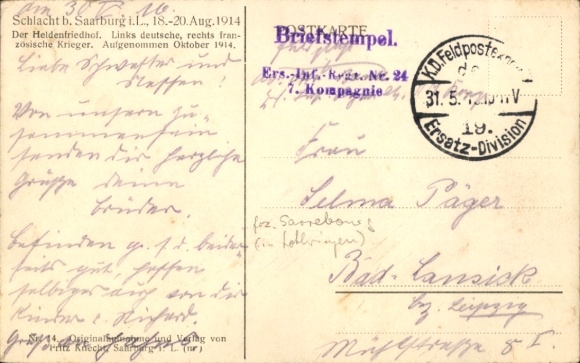 am 30. V. 16.
Schlacht b. Saarburg i. L., 18.-20. Aug. 1914
Der Heldenfriedhof. Links deutsche, rechts fran-
zösische Krieger. Aufgenommen Oktober 1914.
Liebe Schwester und
Neffen!
Von unserm Zu-
sammensein
senden dir herzliche
Grüße deine
Brüder.
Befinden g. s. d. beider-
seits gut, hoffen
selbiges auch von die
Kinder u. Richard.
Nr. 14. Originalaufnahme und Verlag von
Fritz Knecht, Saarburg i. L.
POSTKARTE
Feldpost
Briefstempel.
Ers.-Inf.-Regt. Nr. 24
7. Kompagnie
K.D. Feldpostexped.
31. 5.
19.
Ersatz-Division
Frau
Selma Päger
frz. Sarrebourg
(in Lothringen)
Bad-Lausick
bz. Leipzig
Mühlstraße 8 I.